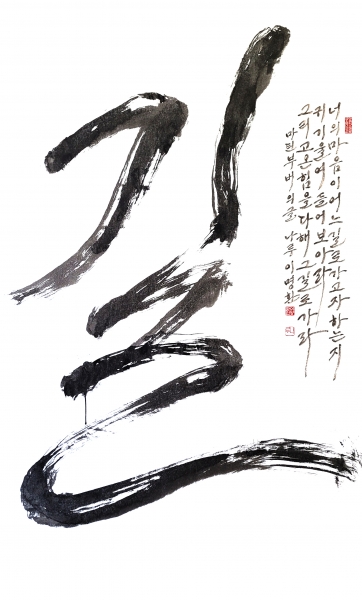 길
너의 마음이 어느 길로 가고자 하는지
귀 기울여 들어 보아라
그리고 온 힘을 다해 그 길로 가라
마틴부버의 글 나루 이명환